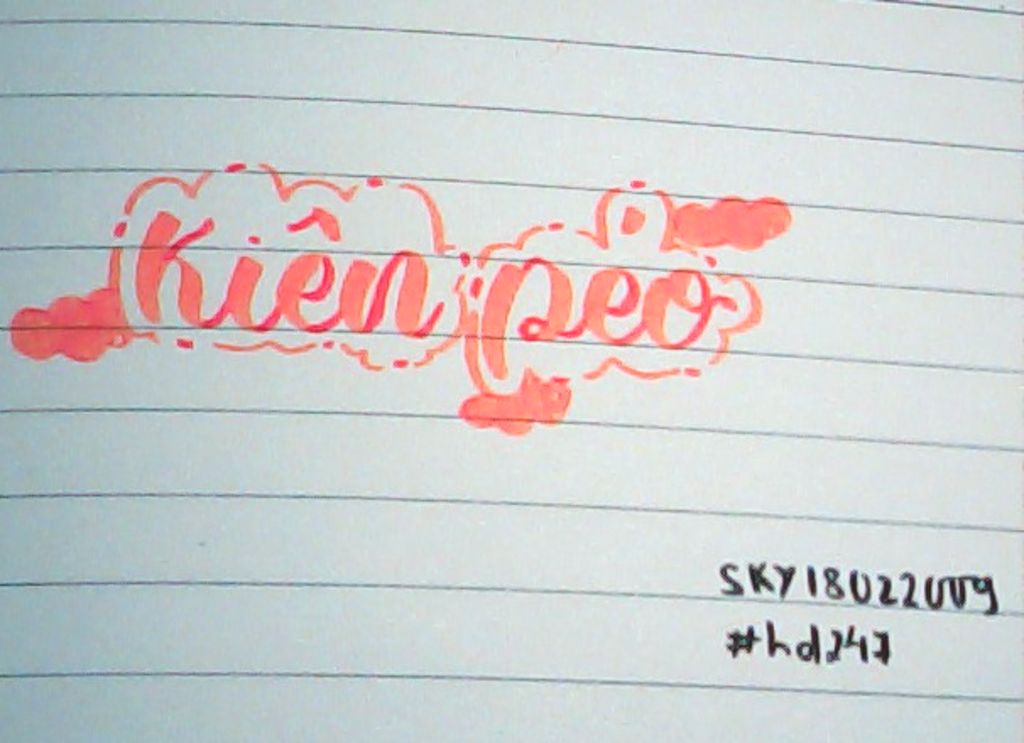 Kiên pẻo
SKY18022009
#hd247